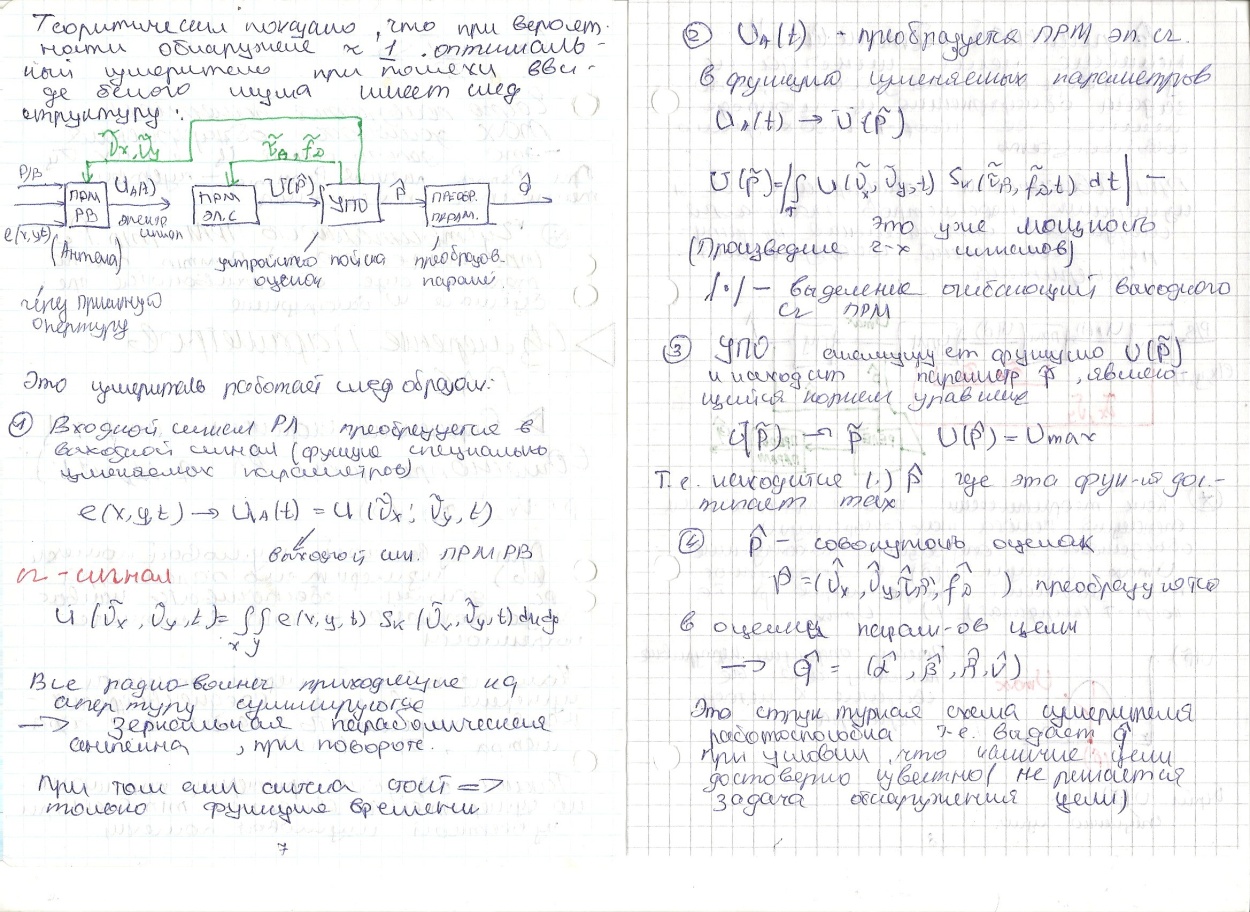 Теоритически показано, что при вероят-
ности обнаружене ≈ 1 оптималь-
ный измеритель при помехи вви-
де белого шума имеет след
структуру:
ṽx, ṽy
τ̃д, f̃D
Р/В
UA(t)
U(p̃)
p̂
q̂
ПРМ РВ
ПРМ ЭЛ.С
УПО
ПРЕОБР. ПАРАМ.
e(x,y,t)
электр сигнал
(Антена)
устройство поиска оценок
преобразов. парам.
через приемную
апертуру
Это измеритель работает след образом:
① Входной сигнал РЛ преобразуется в
выходной сигнал (функцию специально
изменяемых параметров)
e(x,y,t) → UA(t) = U(ṽx; ṽy, t)
выходной сигн. ПРМ РВ
сг - сигнал
U(ṽx, ṽy, t) = ∫∫ e(x,y,t) Sk(ṽx, ṽy, t) dxdy
x y
Все радио-волны приходящие на
апертуру суммируются
→ Зеркальная параболическая
антенна, при повороте.
При том сама стоит ⇒
только функция времени
7
② UA(t) - преобразуется ПРМ эл. сг.
в функцию изменяемых параметров
UA(t) → U(p̃)
U(p̃) = |∫ U(ṽx, ṽy, t) Sk(τ̃д, f̃D, t) dt| —
T
это уже мощность
(Произведение 2-х сигналов)
|•| — выделение огибающий выходного
сг ПРМ
③ УПО анализирует функцию U(p̃)
и находит параметр p̂, являю
щейся корнем уравнение
U(p̃) → p̃ U(p̂) = Umax
Т.е. находится (.) p̂ где эта функ-я дос-
тигает max
④ p̂ - совокупность оценак
p̂ = (v̂x, v̂y, τ̂д, f̂D) преобразуются
в оценки парам-ов цели
→ q̂ = (α̂, β̂, R̂, v̂)
Это структурная схема измерителя
работоспособна т.е. выдает q̂
при условии, что наличие цели
достоверно известно (не решается
задача обнаружения цели)